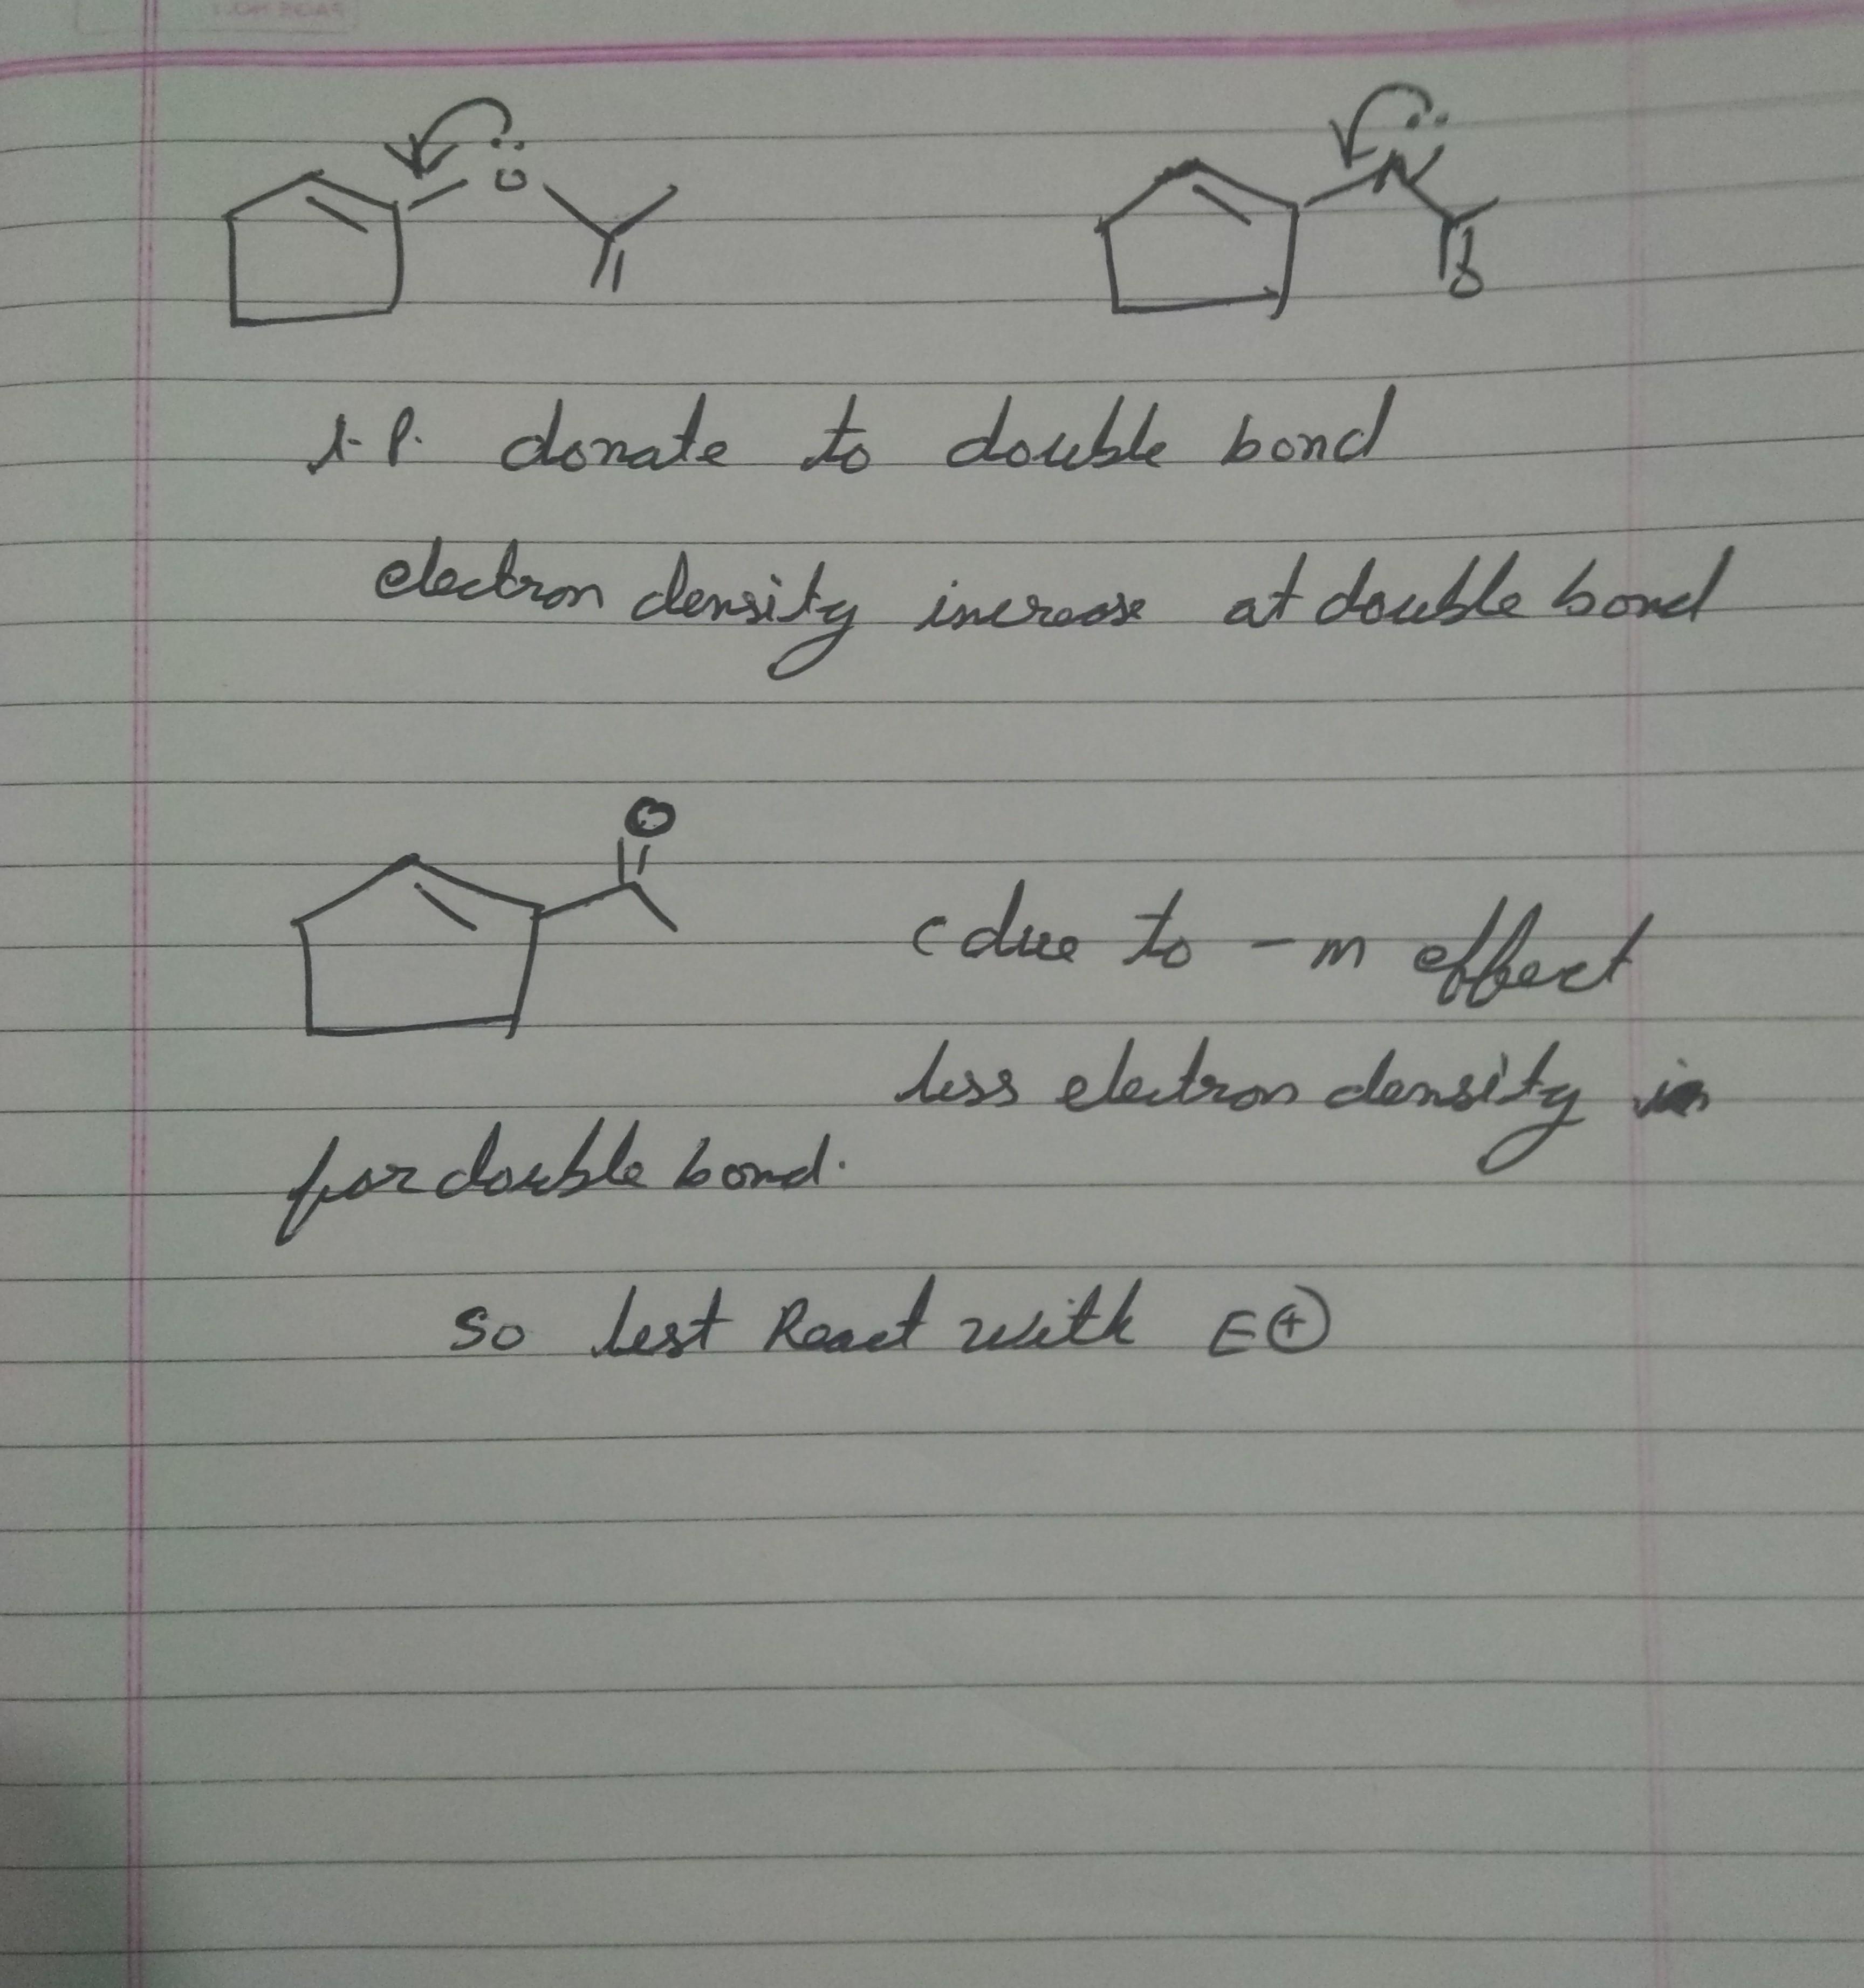 O
N
O
l.p. donate to double bond
electron density increase at double bond
O
c due to - m effect
less electron density in
for double bond.
So lest React with E⊕